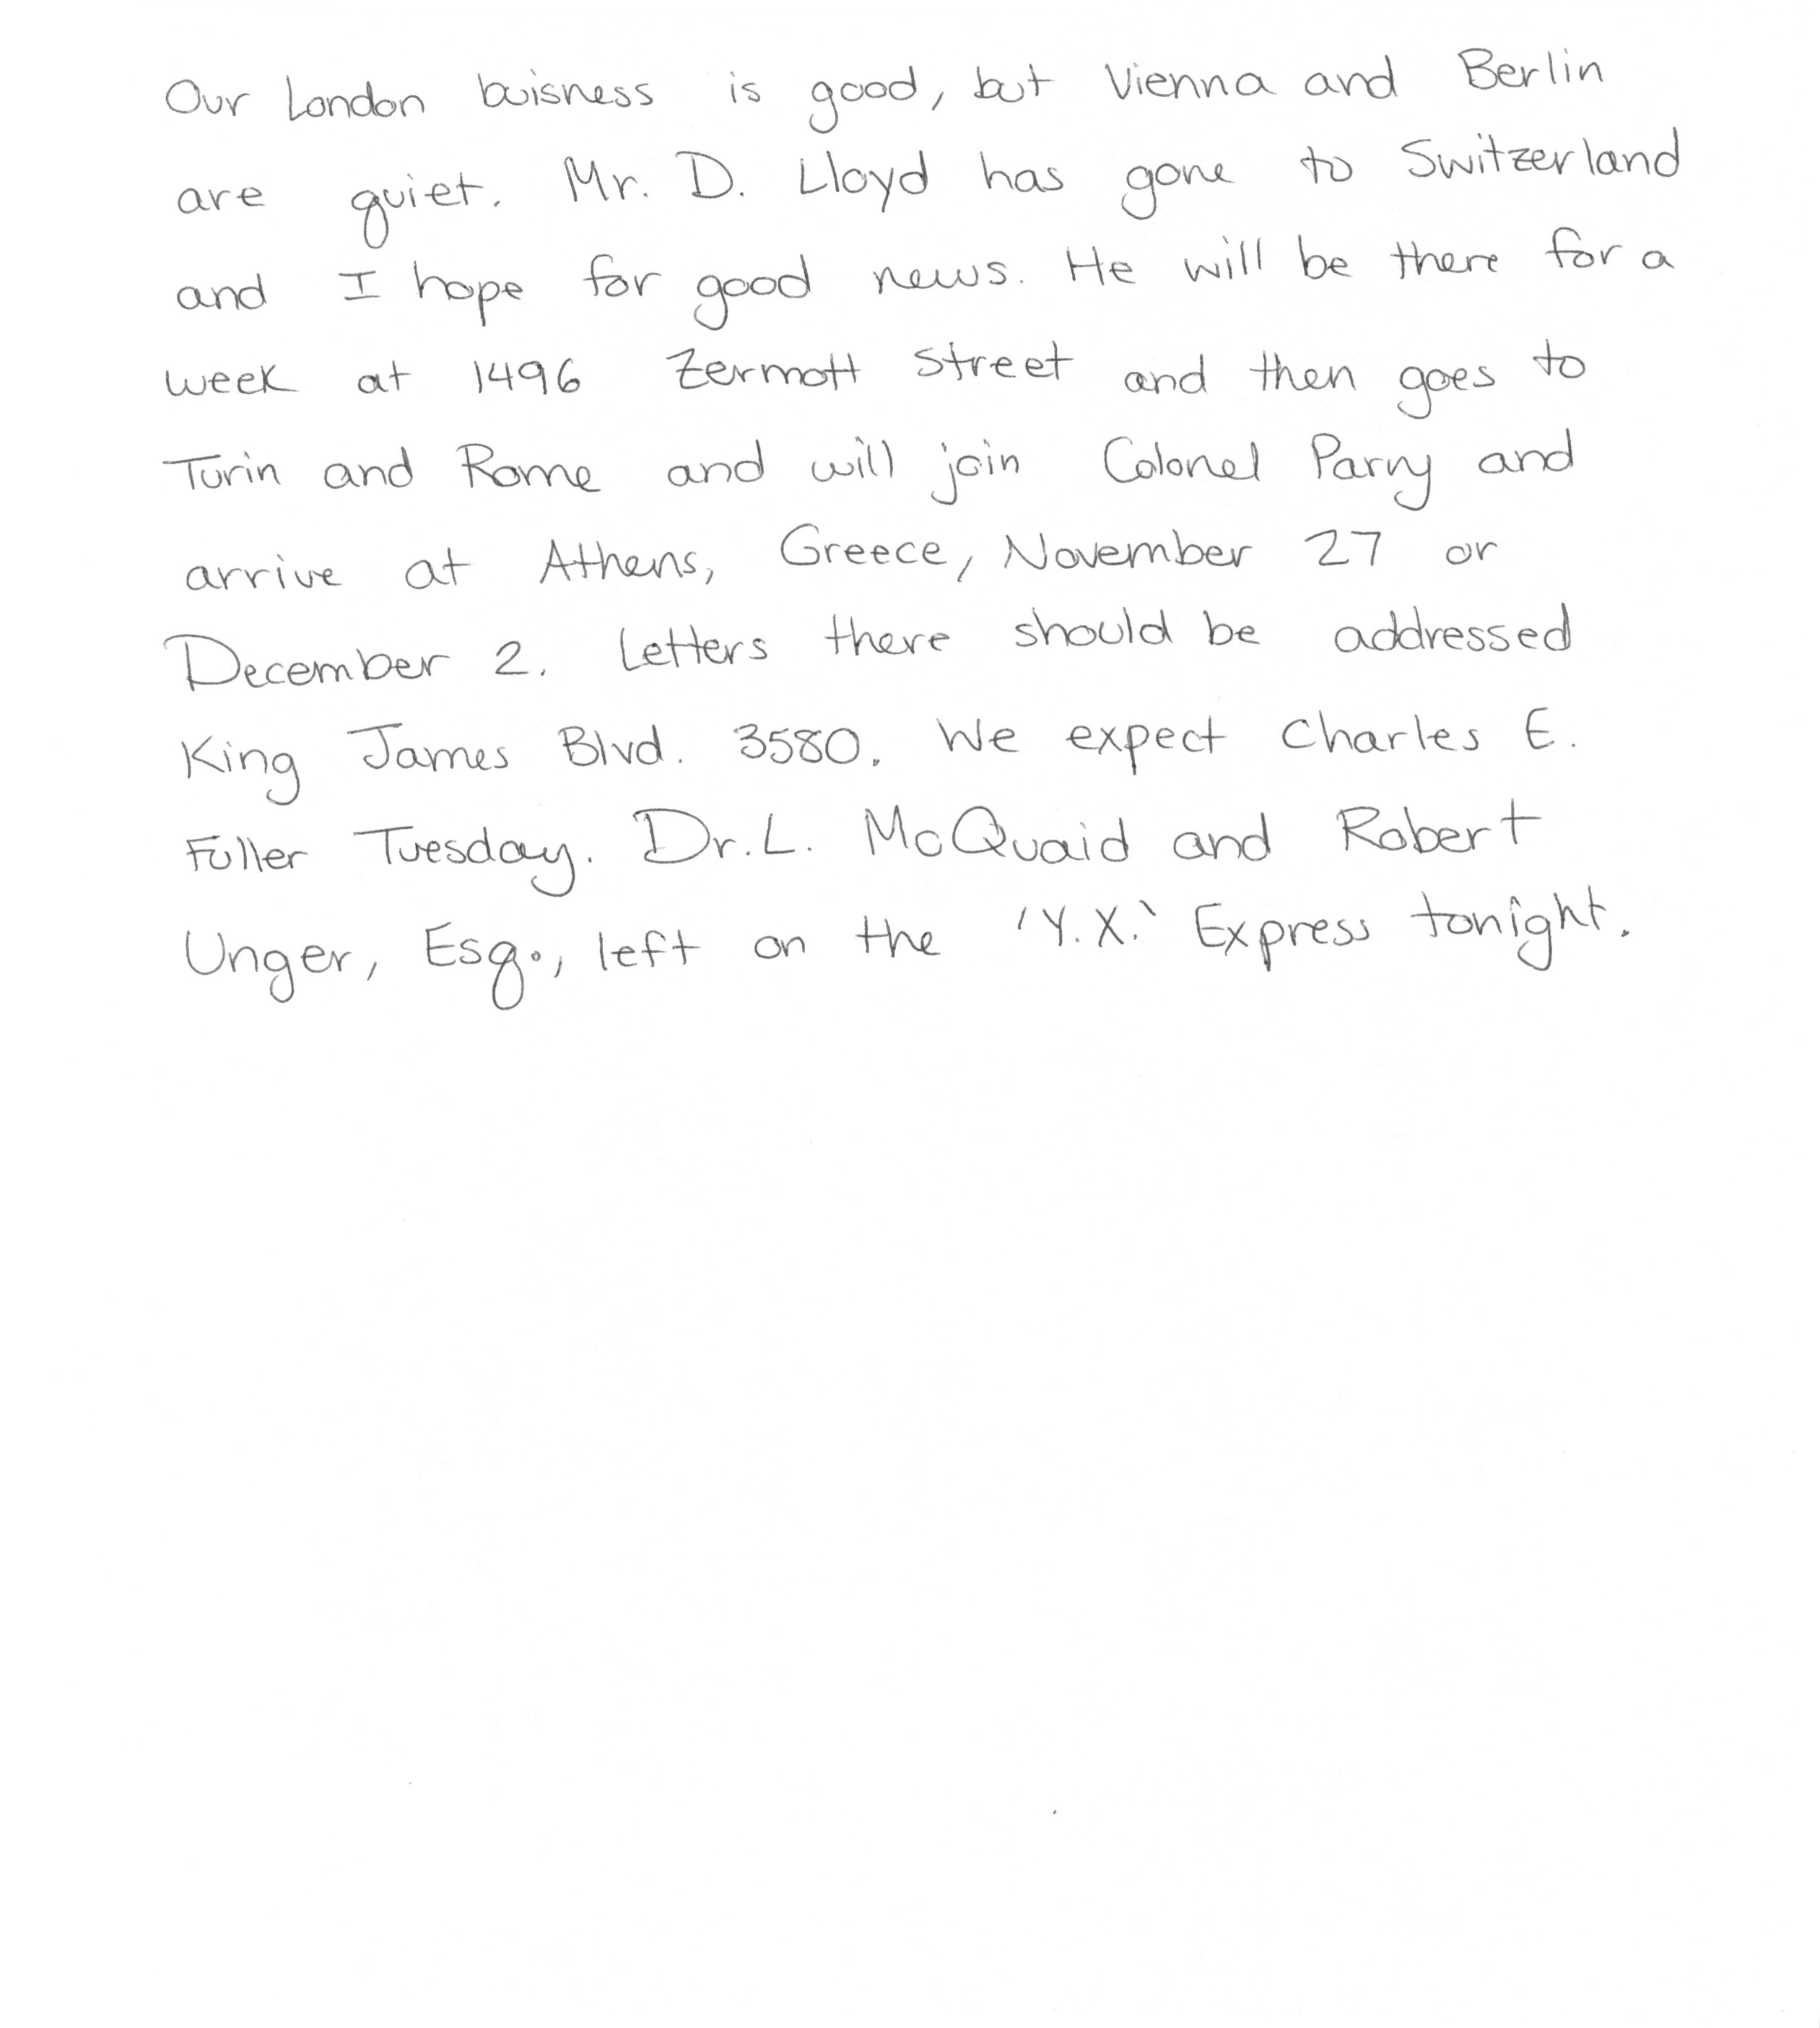 Our London buisness is good, but Vienna and Berlin
are quiet. Mr. D. Lloyd has gone to Switzerland
and I hope for good news. He will be there for a
week at 1496 Zermott street and then goes to
Turin and Rome and will join Colonel Parry and
arrive at Athens, Greece, November 27 or
December 2. Letters there should be addressed
King James Blvd. 3580. We expect Charles E.
Fuller Tuesday. Dr. L. McQuaid and Robert
Unger, Esq., left on the 'Y.X.' Express tonight.